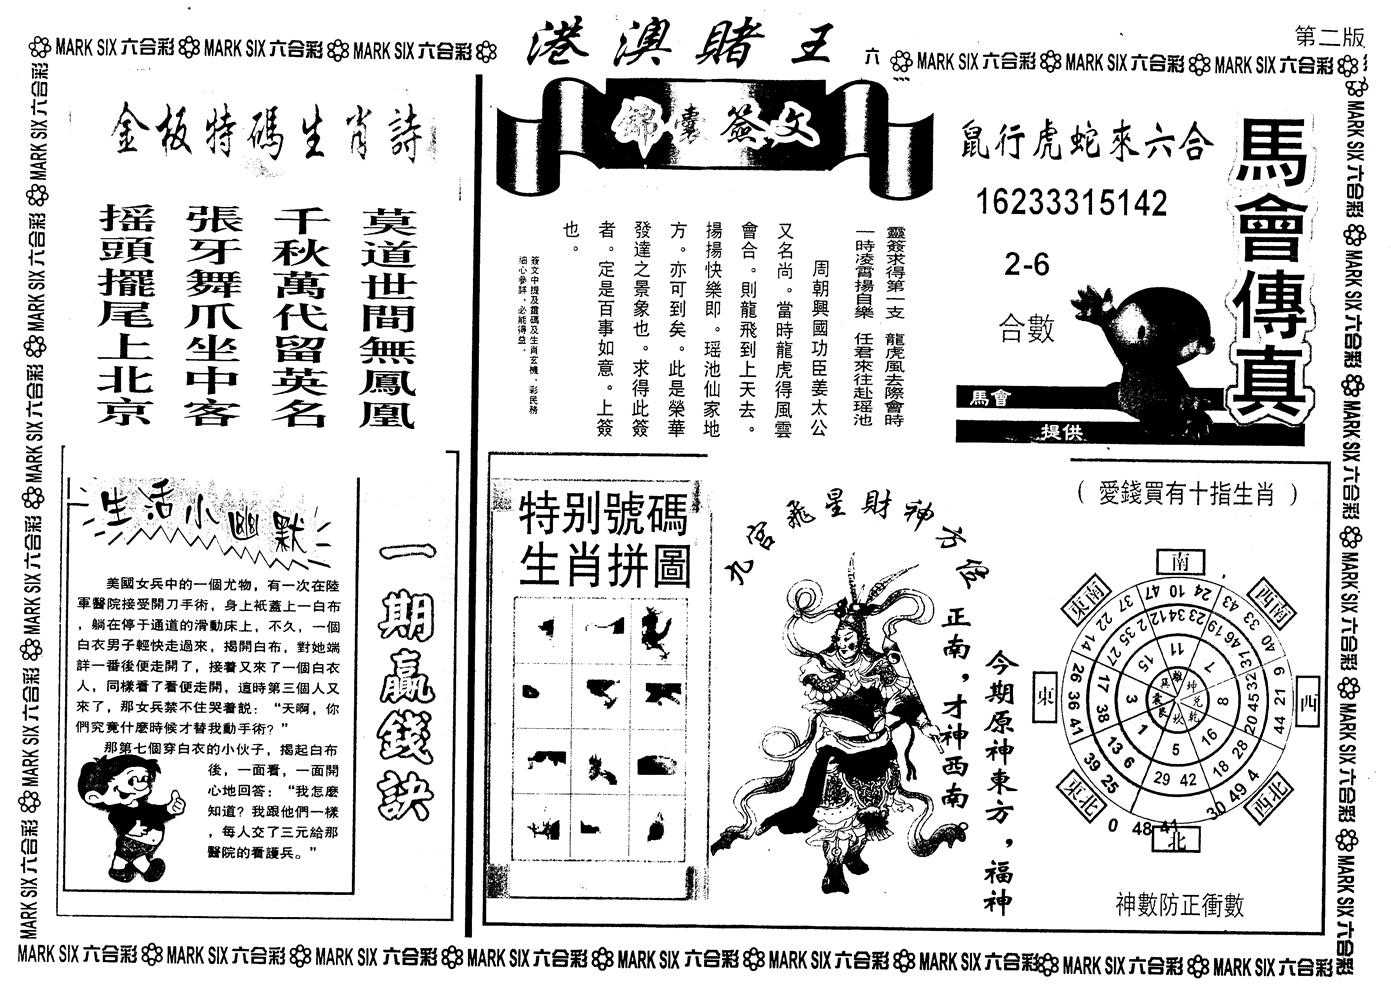 港澳賭王
第二版
MARK SIX 六合彩 MARK SIX 六合彩 MARK SIX 六合彩
六
MARK SIX 六合彩 MARK SIX 六合彩 MARK SIX 六合彩
金板特碼生肖詩
莫道世間無鳳凰
千秋萬代留英名
張牙舞爪坐中客
搖頭擺尾上北京
錦囊簽文
靈簽求得第一支 龍虎風去際會時
一時凌霄揚自樂 任君來往赴瑶池
周朝興國功臣姜太公
又名尚。當時龍虎得風雲
會合。則龍飛到上天去。
揚揚快樂即。瑶池仙家地
方。亦可到矣。此是榮華
發達之景象也。求得此簽
者。定是百事如意。上簽
也。
簽文中提及靈碼及生肖玄機，彩民務
細心參詳，必能得益。
馬會傳真
鼠行虎蛇來六合
16233315142
2-6
合數
馬會
提供
生活小幽默
美國女兵中的一個尤物，有一次在陸
軍醫院接受開刀手術，身上衹蓋上一白布
，躺在停于通道的滑動床上，不久，一個
白衣男子輕快走過來，揭開白布，對她端
詳一番後便走開了，接着又來了一個白衣
人，同樣看了看便走開，這時第三個人又
來了，那女兵禁不住哭着説：“天啊，你
們究竟什麽時候才替我動手術？”
那第七個穿白衣的小伙子，揭起白布
後，一面看，一面開
心地回答：“我怎麽
知道？我跟他們一樣
，每人交了三元給那
醫院的看護兵。”
一期贏錢訣
特别號碼
生肖拼圖
九宫飛星財神方位
今期原神東方，福神
正南，才神西南。
（愛錢買有十指生肖）
南
東南
西南
東
西
東北
西北
北
37 47 10 24 43 33 40
22 14
26 36 41
39 25
0 48 41
30 49 4
9 21 44
2 35 27
12 34 23 19 46 37
32 45 20
28 18
17 38
13 6
29 42
16
11
7
8
5
1
3
15
離 坤 兑 乾 坎 艮 震 巽
神數防正衝數
MARK SIX 六合彩 MARK SIX 六合彩 MARK SIX 六合彩 MARK SIX 六合彩 MARK SIX 六合彩 MARK SIX 六合彩 MARK SIX 六合彩 MARK SIX 六合彩 MARK SIX 六合彩
MARK SIX 六合彩 MARK SIX 六合彩 MARK SIX 六合彩 MARK SIX 六合彩 MARK SIX 六合彩 MARK SIX 六合彩
MARK SIX 六合彩 MARK SIX 六合彩 MARK SIX 六合彩 MARK SIX 六合彩 MARK SIX 六合彩 MARK SIX 六合彩